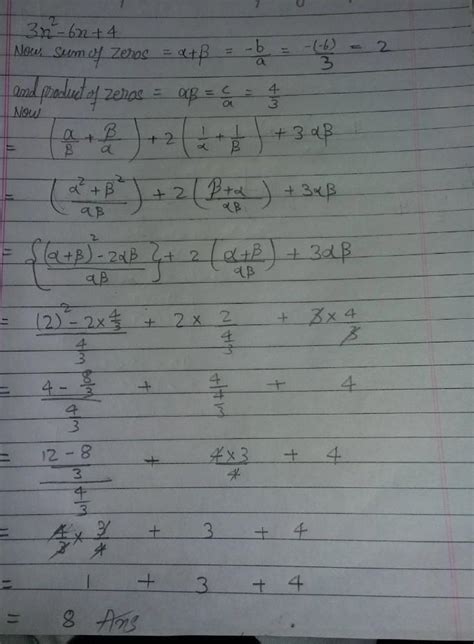 3x²-6x+4
Now sum of zeros = α+β = -b/a = -(-6)/3 = 2
and product of zeros = αβ = c/a = 4/3
Now
= (α/β + β/α) + 2(1/α + 1/β) + 3αβ
= ((α²+β²)/αβ) + 2((β+α)/αβ) + 3αβ
= {((α+β)²-2αβ)/αβ} + 2((α+β)/αβ) + 3αβ
= ((2)²-2×4/3)/(4/3) + 2×2/(4/3) + 3×4/3
= (4-8/3)/(4/3) + 4/(4/3) + 4
= ((12-8)/3)/(4/3) + (4×3)/4 + 4
= 4/3×3/4 + 3 + 4
= 1 + 3 + 4
= 8 Ans